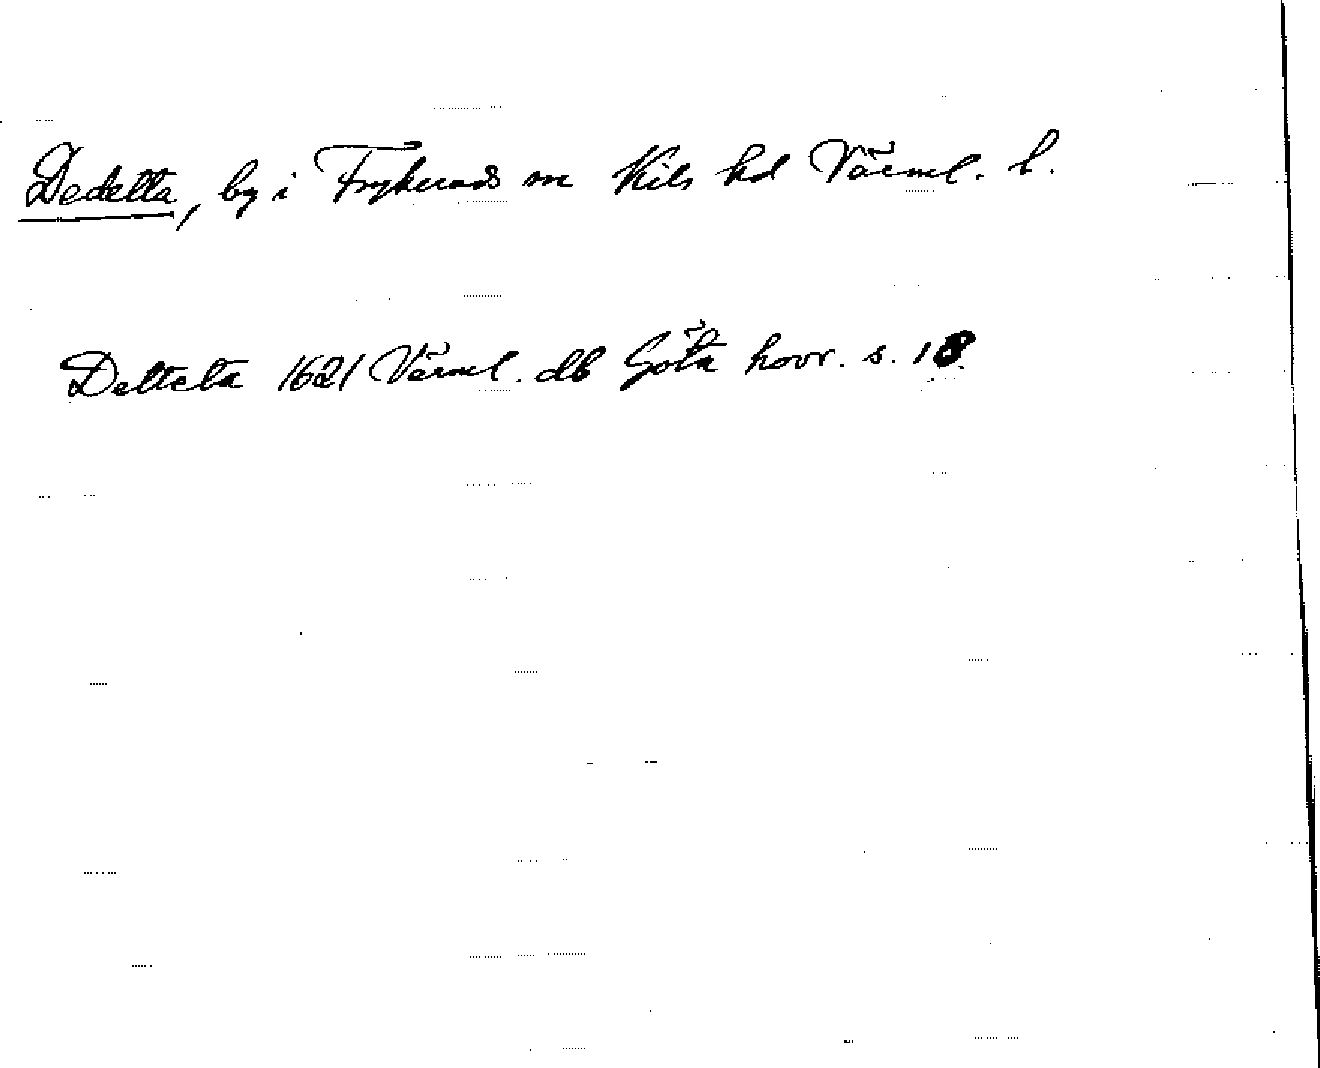 Dedelta, by i Frykeruds sn Kils hd Värml. l.
Deltcta 1621 Värml. db Göta hovr. s. 18